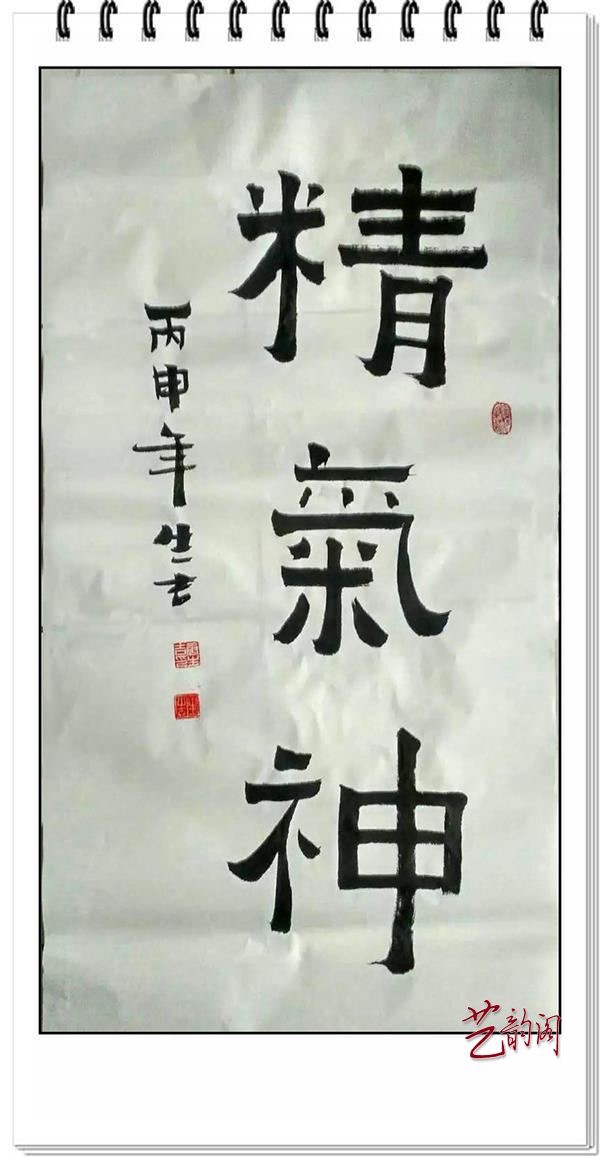 精氣神
丙申年生吉
艺韵阁